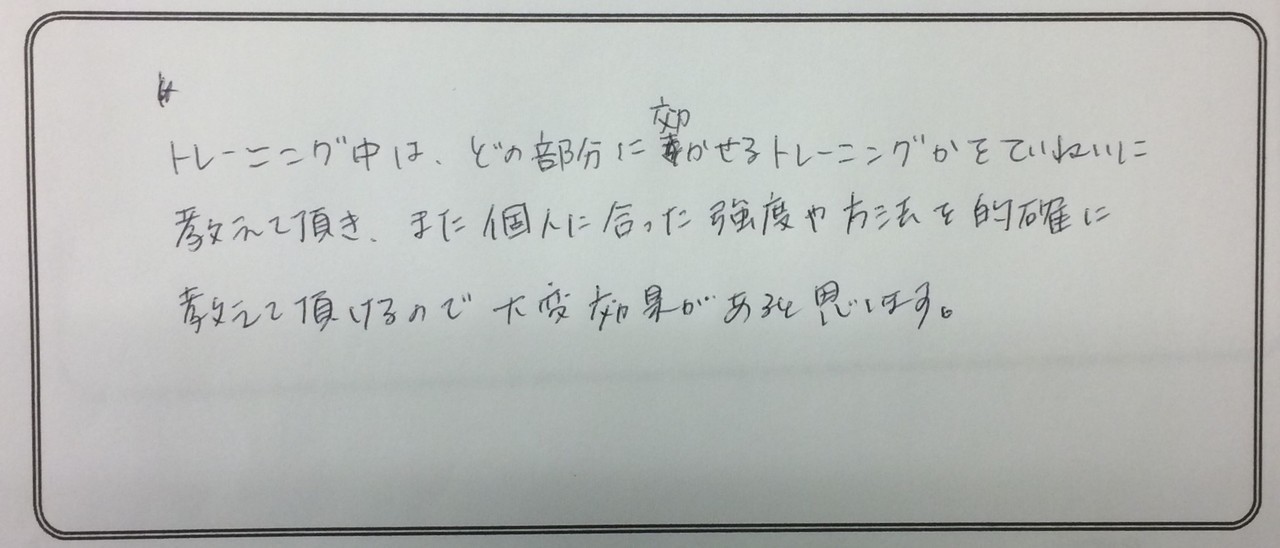 トレーニング中は、どの部分に効かせるトレーニングかをていねいに
教えて頂き、また個人に合った強度や方法を的確に
教えて頂けるので大変効果があると思います。